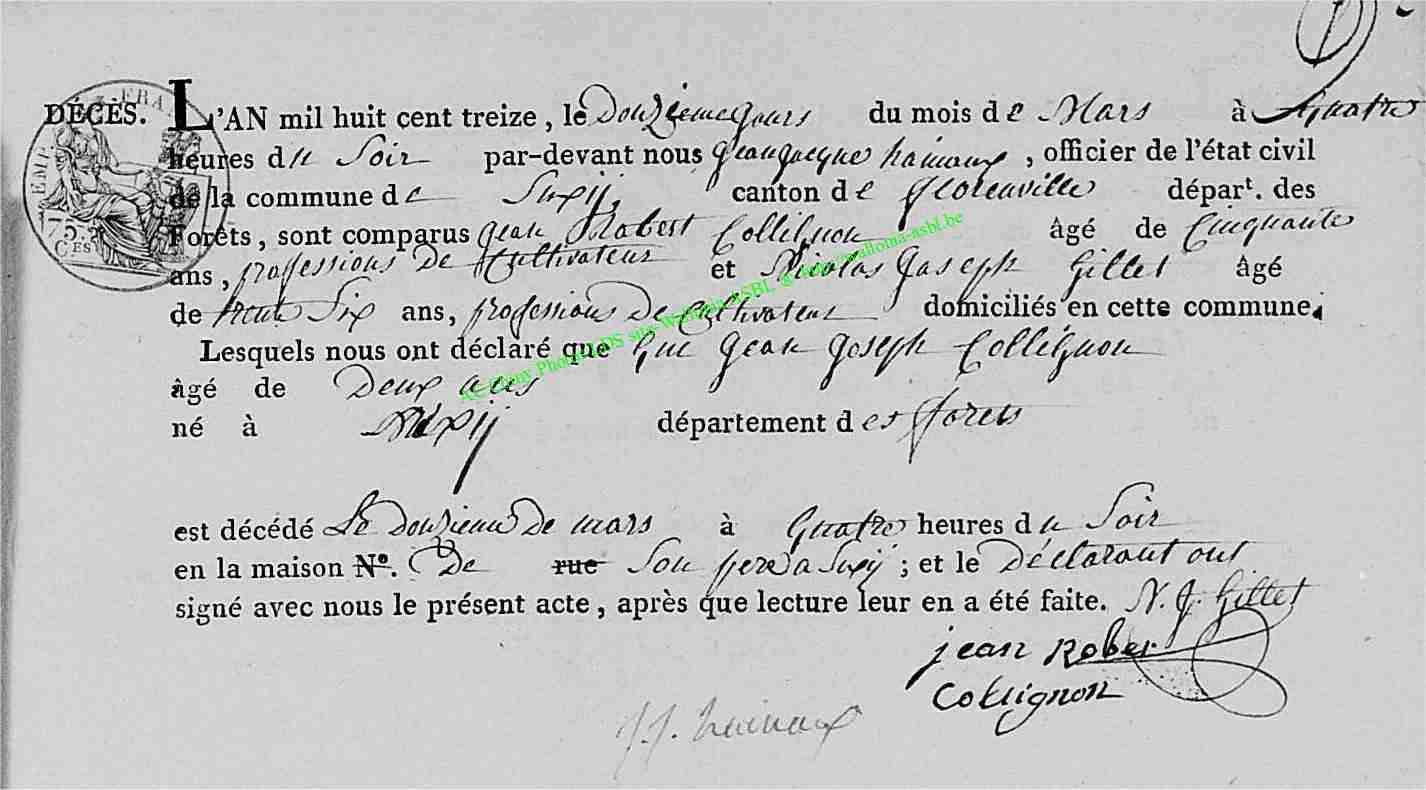 DÉCÈS. L'AN mil huit cent treize, le Douzieme jours du mois de Mars à Quatre
heures du Soir par-devant nous jean jacque hainaux, officier de l'état civil
de la commune de Suxij, canton de florenville départ. des
Forêts, sont comparus jean Robert Collignon âgé de Cinquante
ans, proffessions De Cultivateur et Nicolas Joseph Gillet âgé
de trente Six ans, proffessions De Cultivateur domiciliés en cette commune.
Lesquels nous ont déclaré que Que jean joseph Collignon
âgé de Deux ans
né à Suxij département des forets
est décédé Le douzieme De mars à Quatre heures du Soir
en la maison N°. De rue Son pere a Suxij; et le Déclarant ont
signé avec nous le présent acte, après que lecture leur en a été faite. N. J. Gillet
jean Rober
Collignon
J. J. hainaux
EMP. FRA
75
CES